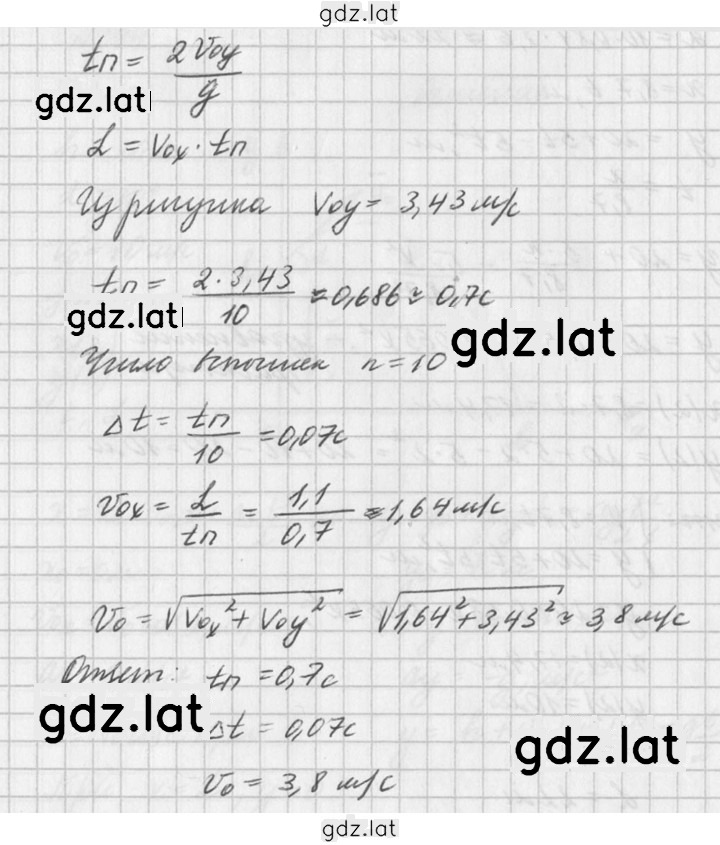 gdz.lat
tп = 2 Voy / g
gdz.lat
L = Vox · tп
Из рисунка Voy = 3,43 м/с
tп = 2 · 3,43 / 10 ≈ 0,686 ≈ 0,7с
gdz.lat
gdz.lat
Число вспышек n = 10
Δt = tп / 10 = 0,07с
Vox = L / tп = 1,1 / 0,7 ≈ 1,64 м/с
Vo = √Vox² + Voy² = √1,64² + 3,43² ≈ 3,8 м/с
Ответ: tп = 0,7с
gdz.lat
Δt = 0,07с
gdz.lat
Vo = 3,8 м/с
gdz.lat